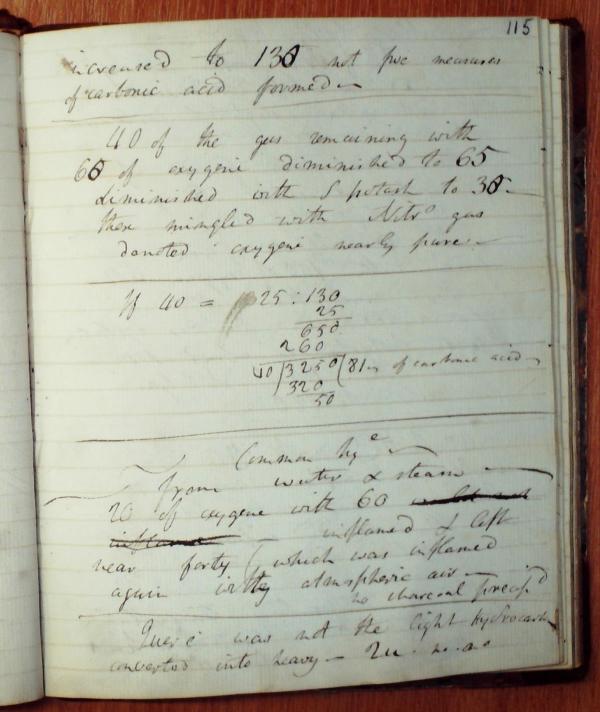 115
increased to 130 not five measures
of carbonic acid formed —
40 of the gas remaining with
60 of oxygene diminished to 65
diminished with S potash to 30 -
these mingled with Nitrs gas
denoted oxygene nearly pure. —
If 40 = 25 : 130
25
650
260
40 ) 3250 ( 81 of carbonic acid
320
50
Common hye —
from water & steam —
20 of oxygene with 60
inflamed & left
near forty ( which was inflamed
again with atmospheric air —
no charcoal precipd
Quere was not the light Hydrocarb
converted into heavy — no.